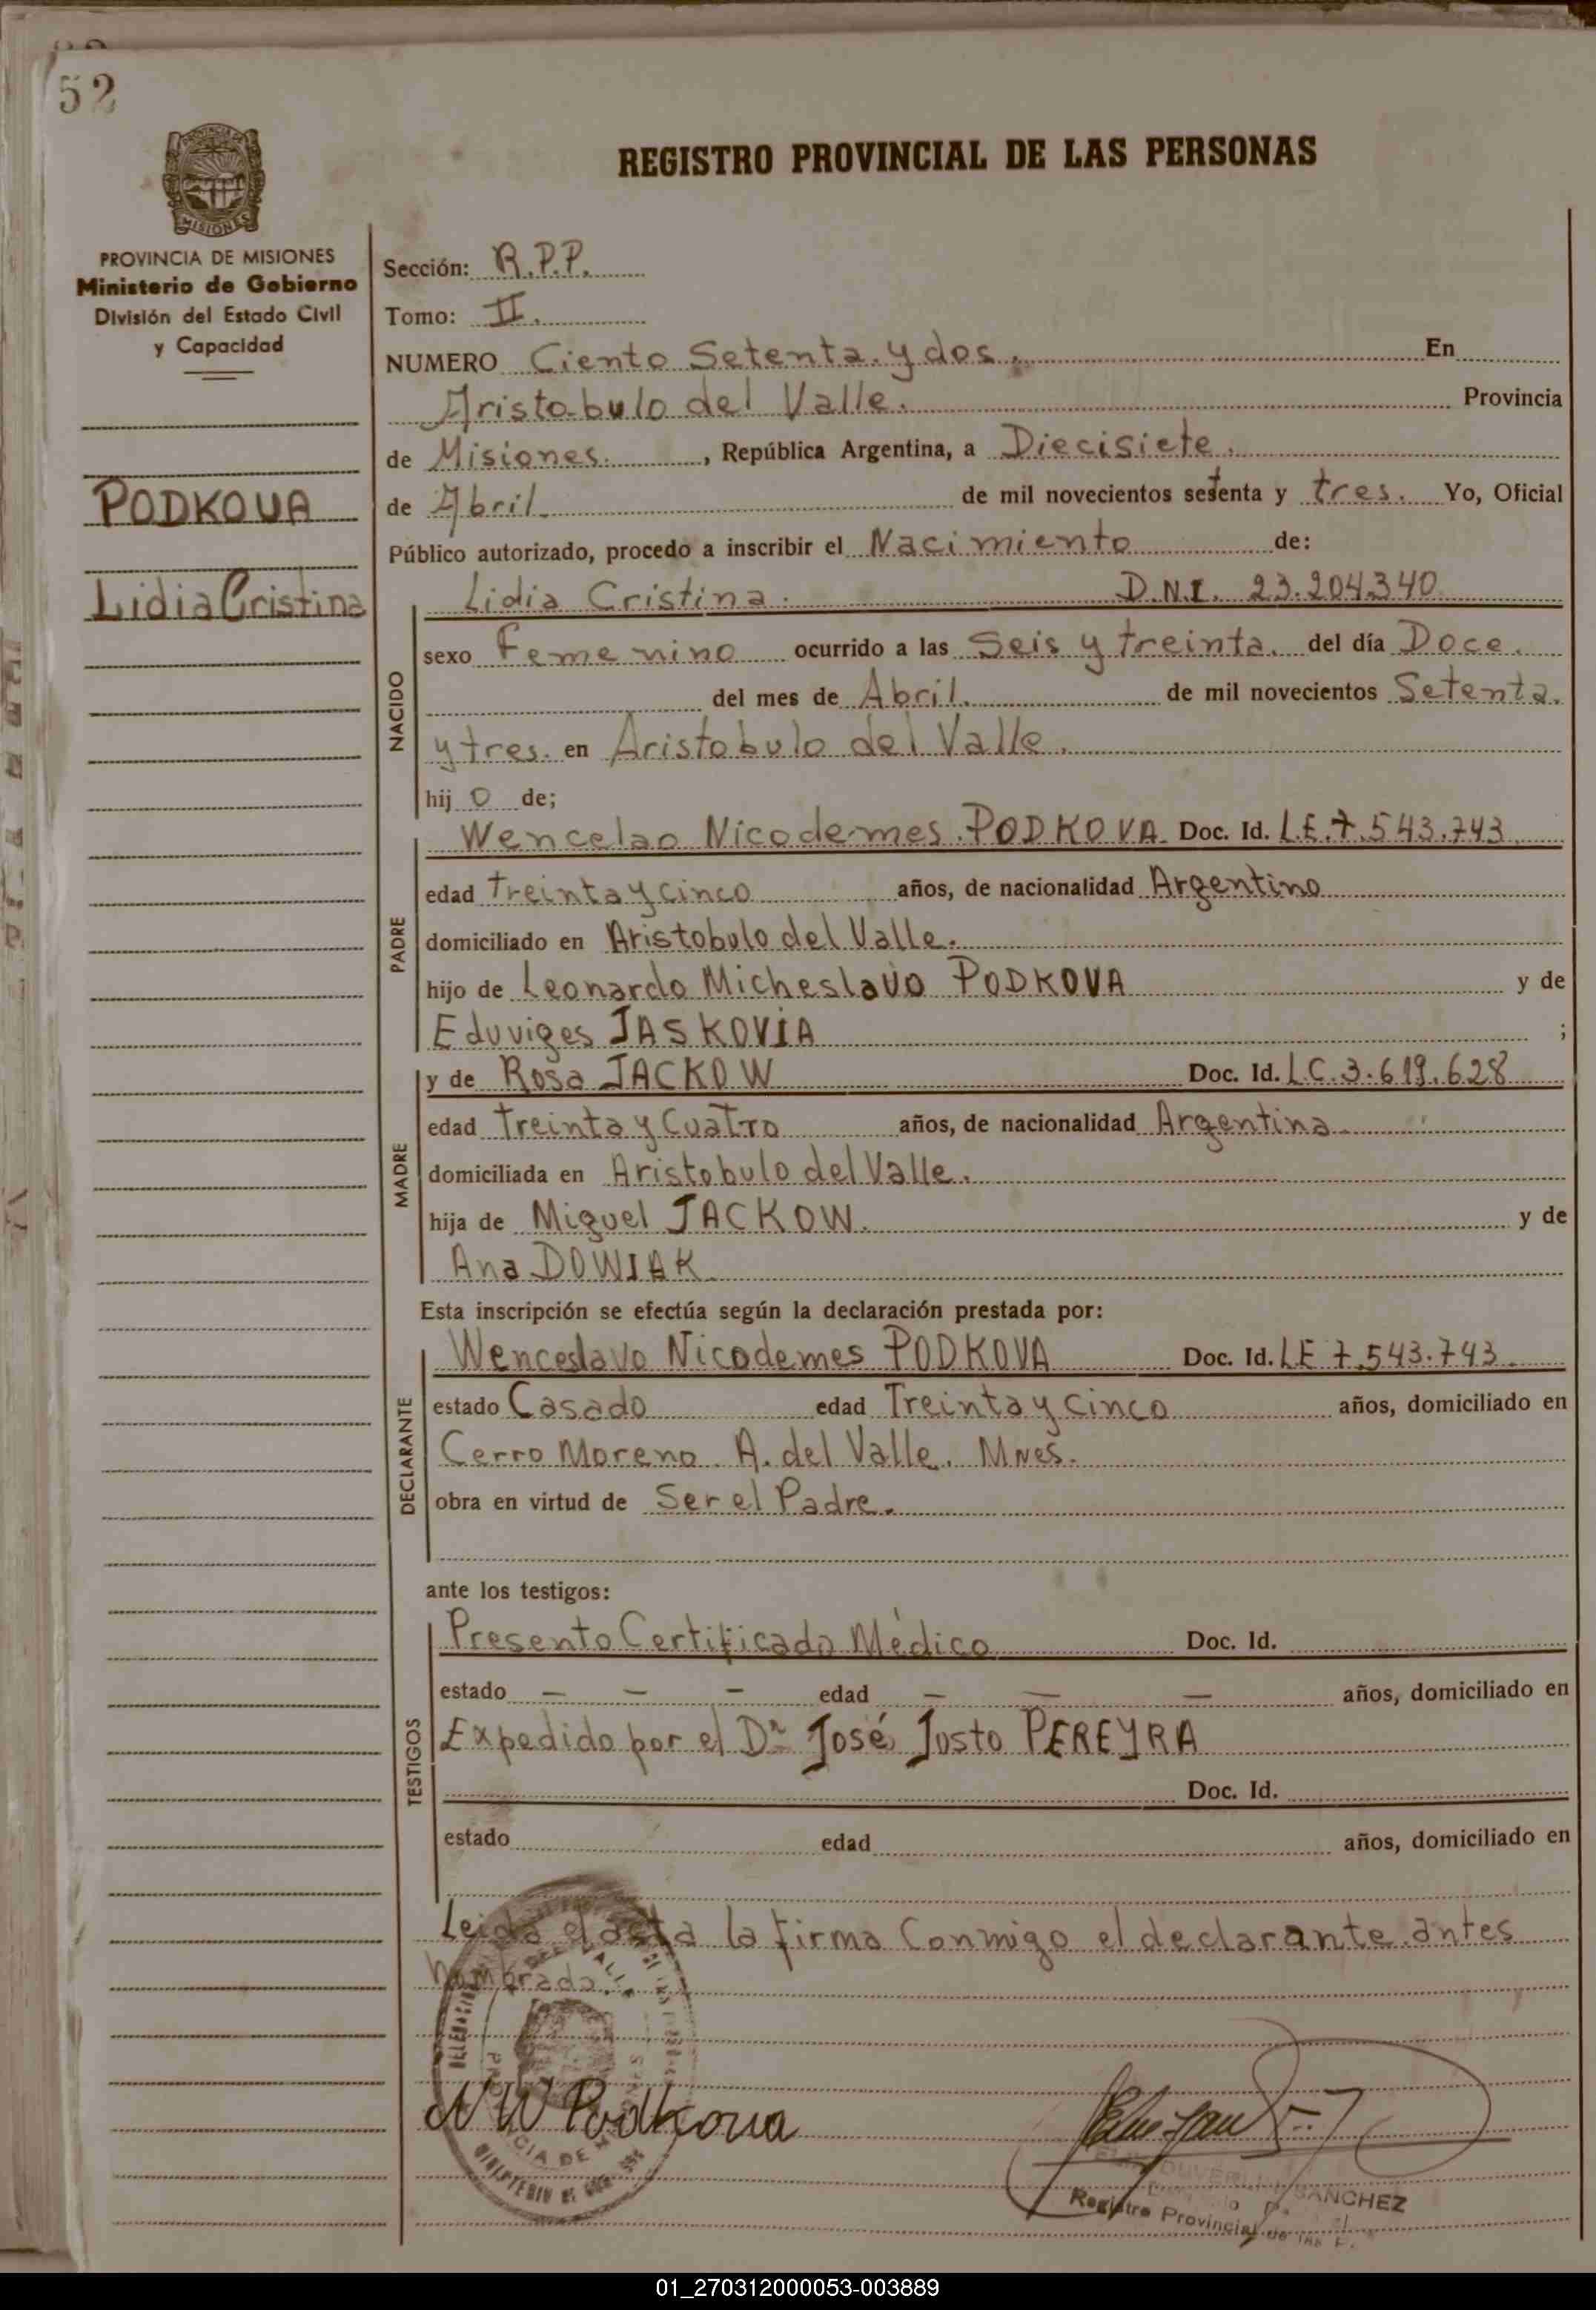 52
REGISTRO PROVINCIAL DE LAS PERSONAS
MISIONES
PROVINCIA DE MISIONES
Ministerio de Gobierno
División del Estado Civil
y Capacidad
PODKOVA
Lidia Cristina
Sección: R.P.P.
Tomo: II.
NUMERO Ciento Setenta y dos. En
Aristobulo del Valle. Provincia
de Misiones. , República Argentina, a Diecisiete.
de Abril. de mil novecientos setenta y tres. Yo, Oficial
Público autorizado, procedo a inscribir el Nacimiento de:
Lidia Cristina. D.N.I. 23.204.340
NACIDO
sexo Femenino ocurrido a las Seis y treinta. del día Doce.
del mes de Abril. de mil novecientos Setenta.
y tres. en Aristobulo del Valle.
hij o de;
PADRE
Wencelao Nicodemes PODKOVA Doc. Id. L.E.7.543.743
edad Treinta y cinco años, de nacionalidad Argentino
domiciliado en Aristobulo del Valle.
hijo de Leonardo Micheslavo PODKOVA y de
Eduviges JASKOVIA ;
MADRE
y de Rosa JACKOW Doc. Id. L.C.3.619.628
edad Treinta y Cuatro años, de nacionalidad Argentina
domiciliada en Aristobulo del Valle.
hija de Miguel JACKOW. y de
Ana DOWIAK
Esta inscripción se efectúa según la declaración prestada por:
DECLARANTE
Wenceslavo Nicodemes PODKOVA Doc. Id. LE 7.543.743.
estado Casado edad Treinta y cinco años, domiciliado en
Cerro Moreno. A. del Valle. Mnes.
obra en virtud de Ser el Padre.
ante los testigos:
TESTIGOS
Presento Certificado Médico Doc. Id.
estado — — — edad — — — años, domiciliado en
Expedido por el Dr José Justo PEREYRA
Doc. Id.
estado edad años, domiciliado en
Leida el acta la firma Conmigo el declarante antes
nombrado.
NW Podkova
SANCHEZ
Registro Provincial de las P.
01_270312000053-003889